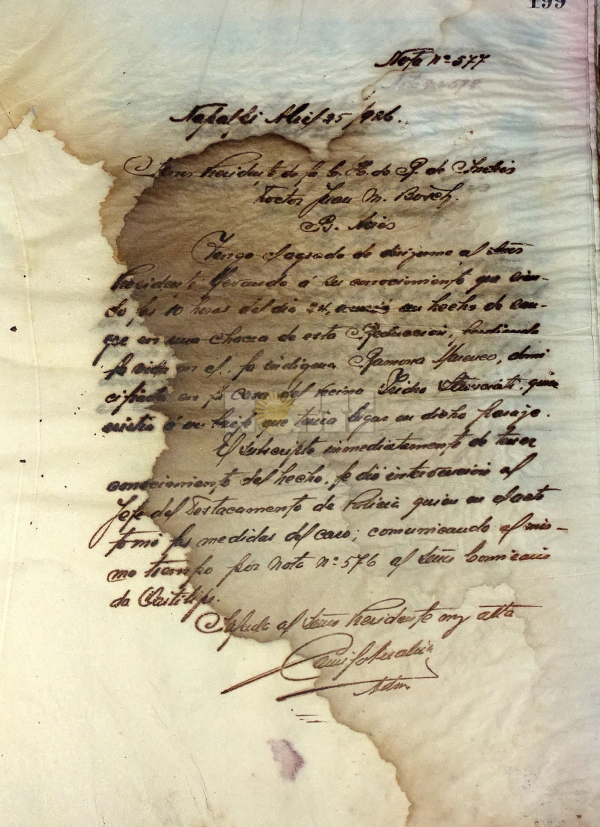 199
Nota Nº 577
Napalpí Abril 25/926.
Señor Presidente de la C. H. de R. de Indios
Doctor Juan M. Bosch.
B. Aires
Tengo el agrado de dirijirme al Señor
Presidente llevando á su conocimiento que cian-
do las 10 horas del dia 24, ocurrió un hecho de san-
gre en una chacra de esta Reduccion, perdiendo
la vida en el, la indígena Ramona, domi
ciliada en la casa del vecino Isidro quien
asistia á un baile que tenia lugar en dicho paraje.
El subscripto inmediatamente de tener
conocimiento del hecho, le dio intervencion al
Jefe del Destacamento de Policia quien en el acto
tomó las medidas del caso; comunicando al mis-
mo tiempo por Nota Nº 576 al Señor Comisario
de Quitilipi.
Saludo al Señor Presidente muy atte
Adm.